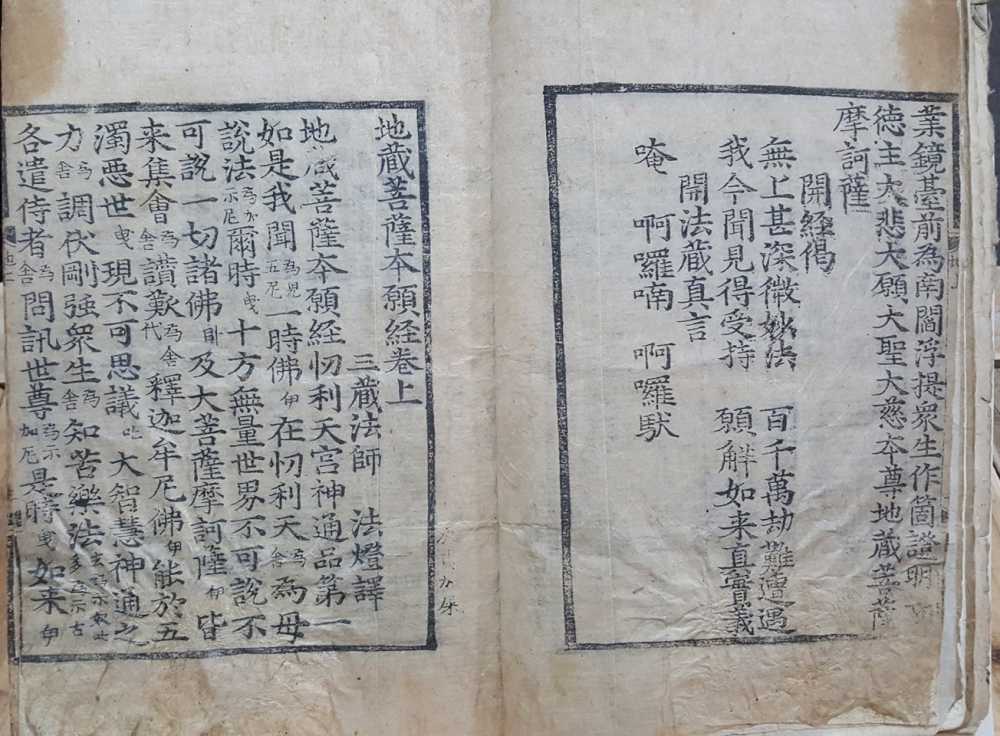 業鏡䑓前為南閻浮提衆生作箇證明
德主大悲大願大聖大慈本尊地蔵菩薩
摩訶薩
開經偈
無上甚深微妙法 百千萬劫難遭遇
我今聞見得受持 願解如来真實義
開法蔵真言
唵 啊囉喃 啊囉䭾
地蔵菩薩本願經卷上
三蔵法師 法燈譯
地蔵菩薩本願經忉利天宮神通品第一
如是我聞 為児五尼 一時佛 伊 在忉利天 為舍 為母
說法 為亦示尼 爾時 曳 十方無量世界不可說不
可說一切諸佛 及大菩薩摩訶薩 伊 皆
来集會 為舍 讃歎 為舍代 釋迦牟尼佛 伊 能於五
濁悪世 曳 現不可思議 叱 大智慧神通之
力 為舍 調伏剛強衆生 為舍 知苦樂法
各遣侍者 為舍 問訊世尊 為示加尼 是時 曳 如来 伊